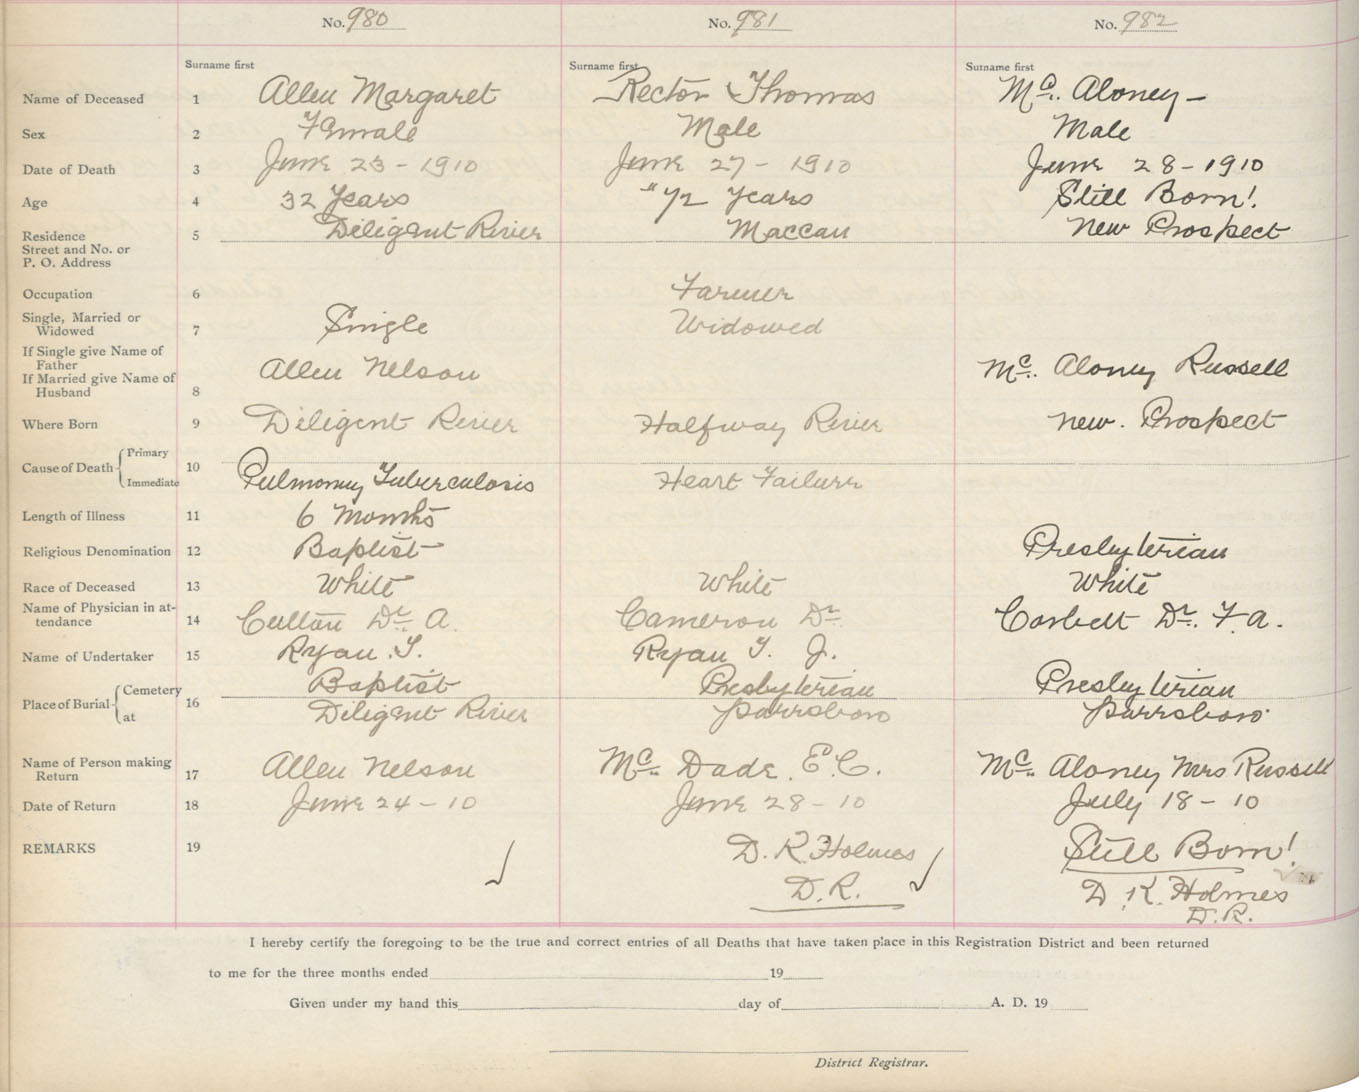 No. 980 No. 981 No. 982
Surname first Surname first Surname first
Name of Deceased 1 Allen Margaret Rector Thomas Mc. Aloney -
Sex 2 Female Male Male
Date of Death 3 June 23 - 1910 June 27 - 1910 June 28 - 1910
Age 4 32 Years 72 Years Still Born!
Residence 5 Diligent River Maccan New Prospect
Street and No. or
P. O. Address
Occupation 6 Farmer
Single, Married or
Widowed 7 Single Widowed
If Single give Name of
Father
If Married give Name of
Husband 8 Allen Nelson Mc. Aloney Russell
Where Born 9 Diligent River Halfway River New. Prospect
Cause of Death Primary
Immediate 10 Pulmony Tuberculosis Heart Failure
Length of Illness 11 6 Months
Religious Denomination 12 Baptist Presbyterian
Race of Deceased 13 White White White
Name of Physician in at-
tendance 14 Cullen Dr. A. Cameron Dr. Corbett Dr. F. A.
Name of Undertaker 15 Ryan. T. Ryan T. J.
Place of Burial Cemetery 16 Baptist Presbyterian Presbyterian
at Diligent River Parrsboro Parrsboro
Name of Person making
Return 17 Allen Nelson Mc. Dade. E. C. Mc. Aloney Mrs Russell
Date of Return 18 June 24 - 10 June 28 - 10 July 18 - 10
REMARKS 19 D. R. Holmes Still Born!
D. R. D. K. Holmes
D. R.
I hereby certify the foregoing to be the true and correct entries of all Deaths that have taken place in this Registration District and been returned
to me for the three months ended 19
Given under my hand this day of A. D. 19
District Registrar.